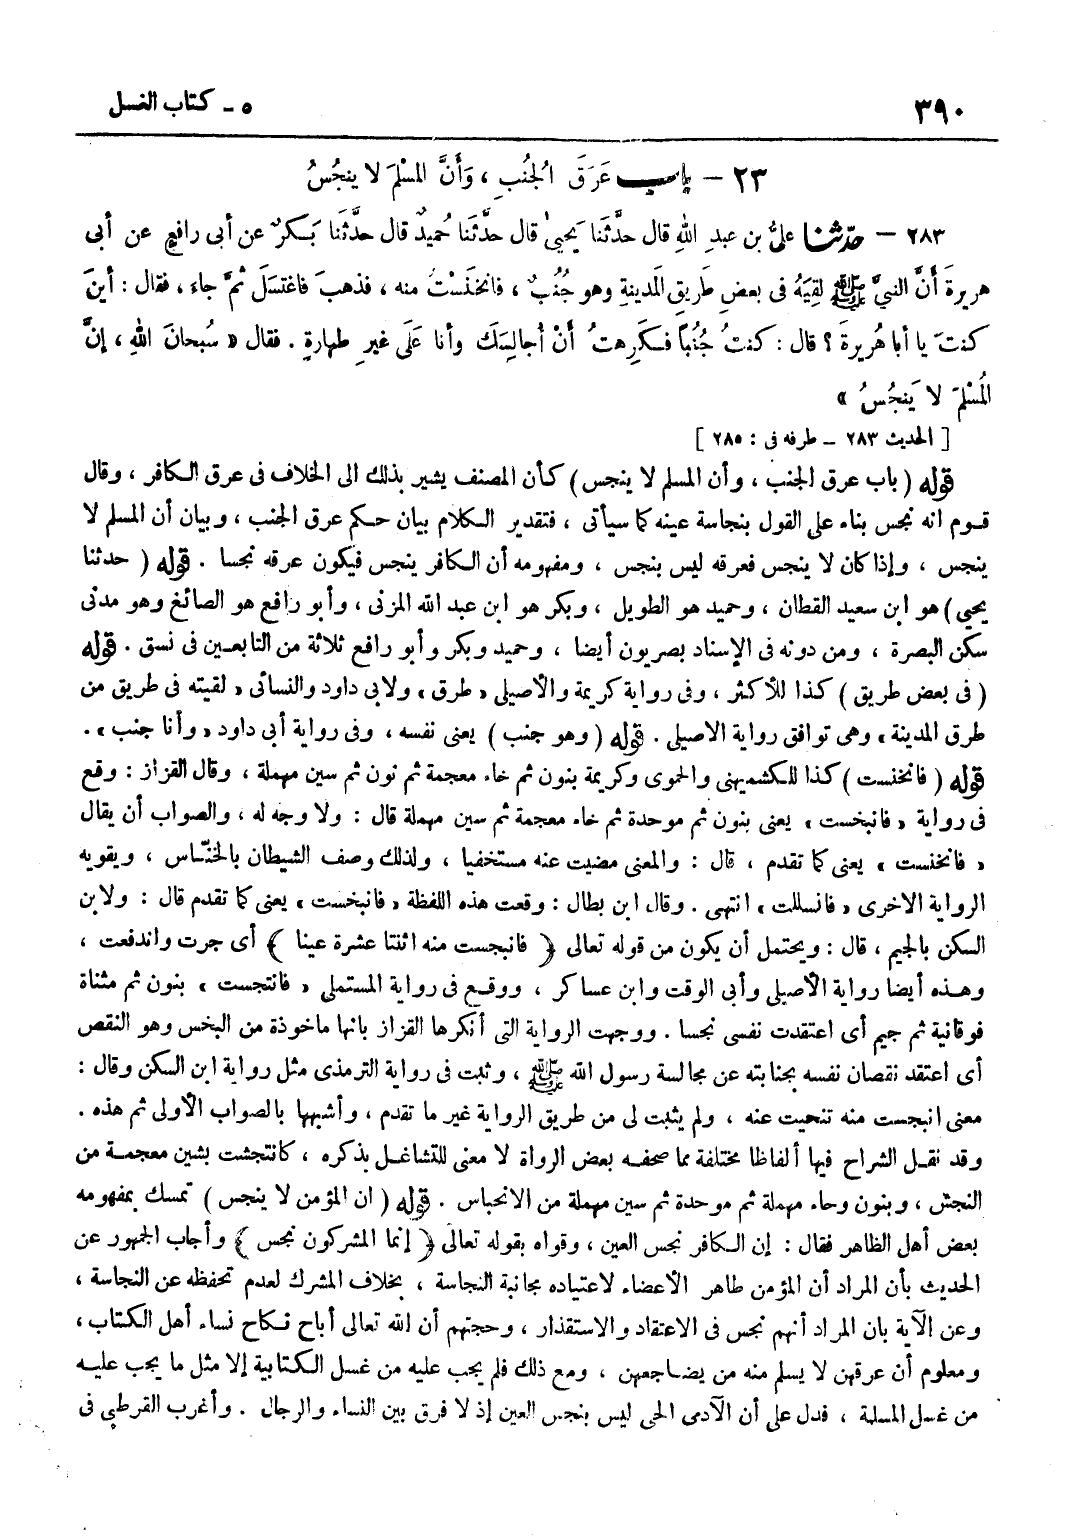 ٣٩٠
٥ - كتاب الغسل
٢٣ - باب عَرَقِ الجُنُبِ ، وَأَنَّ المسْلِمَ لا ينجُسُ
٢٨٣ - حدّثنا علىُّ بن عبدِ اللهِ قال حدَّثَنا يَحيىٰ قال حدَّثَنا حُميدٌ قال حدَّثَنا بَكرٌ عن أبى رافعٍ عن أبى
هريرةَ أَنَّ النبىَّ ﷺ لقِيَهُ فى بعضِ طَرِيقِ المَدينةِ وهو جُنُبٌ ، فانخَنَسْتُ منه ، فذهبَ فاغتسَلَ ثمَّ جاء ، فقال : أينَ
كنتَ يا أبا هُريرةَ ؟ قال : كنتُ جُنُباً فكَرِهتُ أَنْ أجالِسَكَ وأنا عَلَى غيرِ طهارةٍ . فقال « سُبحانَ اللهِ ، إنَّ
المُسْلِمَ لا يَنجُسُ »
[ الحديث ٢٨٣ - طرفه فى : ٢٨٥ ]
قوله ( باب عرق الجنب ، وأن المسلم لا ينجس ) كأن المصنف يشير بذلك الى الخلاف فى عرق الكافر ، وقال
قوم انه نجس بناء على القول بنجاسة عينه كما سيأتى ، فتقدير الكلام بيان حكم عرق الجنب ، وبيان أن المسلم لا
ينجس ، وإذا كان لا ينجس فعرقه ليس بنجس ، ومفهومه أن الكافر ينجس فيكون عرقه نجسا . قوله ( حدثنا
يحيى ) هو ابن سعيد القطان ، وحميد هو الطويل ، وبكر هو ابن عبد الله المزنى ، وأبو رافع هو الصائغ وهو مدنى
سكن البصرة ، ومن دونه فى الإسناد بصريون أيضا ، وحميد وبكر وأبو رافع ثلاثة من التابعين فى نسق . قوله
( فى بعض طريق ) كذا للأكثر ، وفى رواية كريمة والأصيلى « طرق » ولابى داود والنسائى « لقيته فى طريق من
طرق المدينة » وهى توافق رواية الاصيلى . قوله ( وهو جنب ) يعنى نفسه ، وفى رواية أبى داود « وأنا جنب » .
قوله ( فانخنست ) كذا للكشميهنى والحموى وكريمة بنون ثم خاء معجمة ثم نون ثم سين مهملة ، وقال القزاز : وقع
فى رواية « فانبخست » يعنى بنون ثم موحدة ثم خاء معجمة ثم سين مهملة قال : ولا وجه له ، والصواب أن يقال
« فانخنست » يعنى كما تقدم ، قال : والمعنى مضيت عنه مستخفيا ، ولذلك وصف الشيطان بالخنّاس ، ويقويه
الرواية الاخرى « فانسللت » انتهى . وقال ابن بطال : وقعت هذه اللفظة « فانبخست » يعنى كما تقدم قال : ولابن
السكن بالجيم ، قال : ويحتمل أن يكون من قوله تعالى ﴿ فانبجست منه اثنتا عشرة عينا ﴾ أى جرت واندفعت ،
وهذه أيضا رواية الأصيلى وأبى الوقت وابن عساكر ، ووقع فى رواية المستملى « فانتجست » بنون ثم مثناة
فوقانية ثم جيم أى اعتقدت نفسى نجسا . ووجهت الرواية التى أنكرها القزاز بانها ماخوذة من البخس وهو النقص
أى اعتقد نقصان نفسه بجنابته عن مجالسة رسول الله ﷺ ، وثبت فى رواية الترمذى مثل رواية ابن السكن وقال :
معنى انبجست منه تنحيت عنه ، ولم يثبت لى من طريق الرواية غير ما تقدم ، وأشبهها بالصواب الأولى ثم هذه .
وقد نقل الشراح فيها ألفاظا مختلفة مما صحفه بعض الرواة لا معنى للتشاغل بذكره ، كانتجشت بشين معجمة من
النجش ، وبنون وحاء مهملة ثم موحدة ثم سين مهملة من الانحباس . قوله ( ان المؤمن لا ينجس ) تمسك بمفهومه
بعض أهل الظاهر فقال : إن الكافر نجس العين ، وقواه بقوله تعالى ﴿ إنما المشركون نجس ﴾ وأجاب الجمهور عن
الحديث بأن المراد أن المؤمن طاهر الأعضاء لاعتياده مجانبة النجاسة ، بخلاف المشرك لعدم تحفظه عن النجاسة ،
وعن الآية بان المراد أنهم نجس فى الاعتقاد والاستقذار ، وحجتهم أن الله تعالى أباح نكاح نساء أهل الكتاب ،
ومعلوم أن عرقهن لا يسلم منه من يضاجعهن ، ومع ذلك فلم يجب عليه من غسل الكتابية إلا مثل ما يجب عليه
من غسل المسلمة ، فدل على أن الآدمى الحى ليس بنجس العين إذ لا فرق بين النساء والرجال . وأغرب القرطبى فى